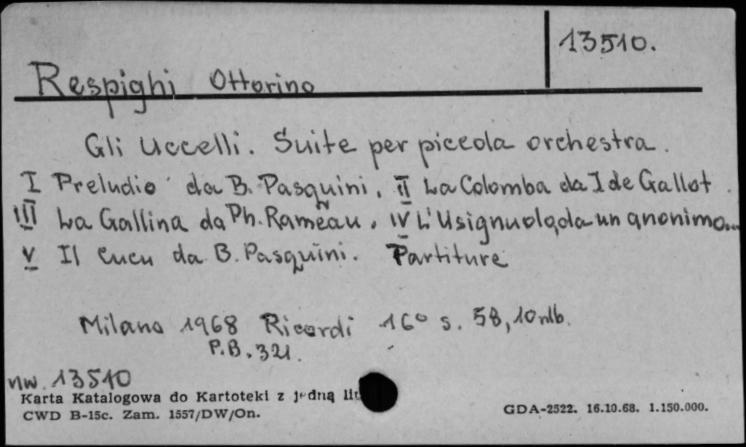 13510.
Respighi Ottorino
Gli Uccelli. Suite per piccola orchestra.
I Preludio da B. Pasquini. II La Colomba da I de Gallot.
III La Gallina da Ph. Rameau. IV L'Usignuolo, da un anonimo...
V Il Cucu da B. Pasquini. Partiture
Milano 1968 Ricordi 16° s. 58, 10 nlb.
P.B. 321.
nw. 13510
Karta Katalogowa do Kartoteki z jedną
CWD B-15c. Zam. 1557/DW/On.
GDA-2522. 16.10.68. 1.150.000.